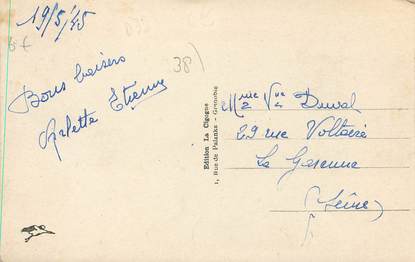 19/5/45
6€
38)
Bons baisers
Arlette Etienne
Edition La Cigogne
1, Rue de Palanka - Grenoble
Mme Vve Duval
29 rue Voltaire
La Garenne
(Seine)